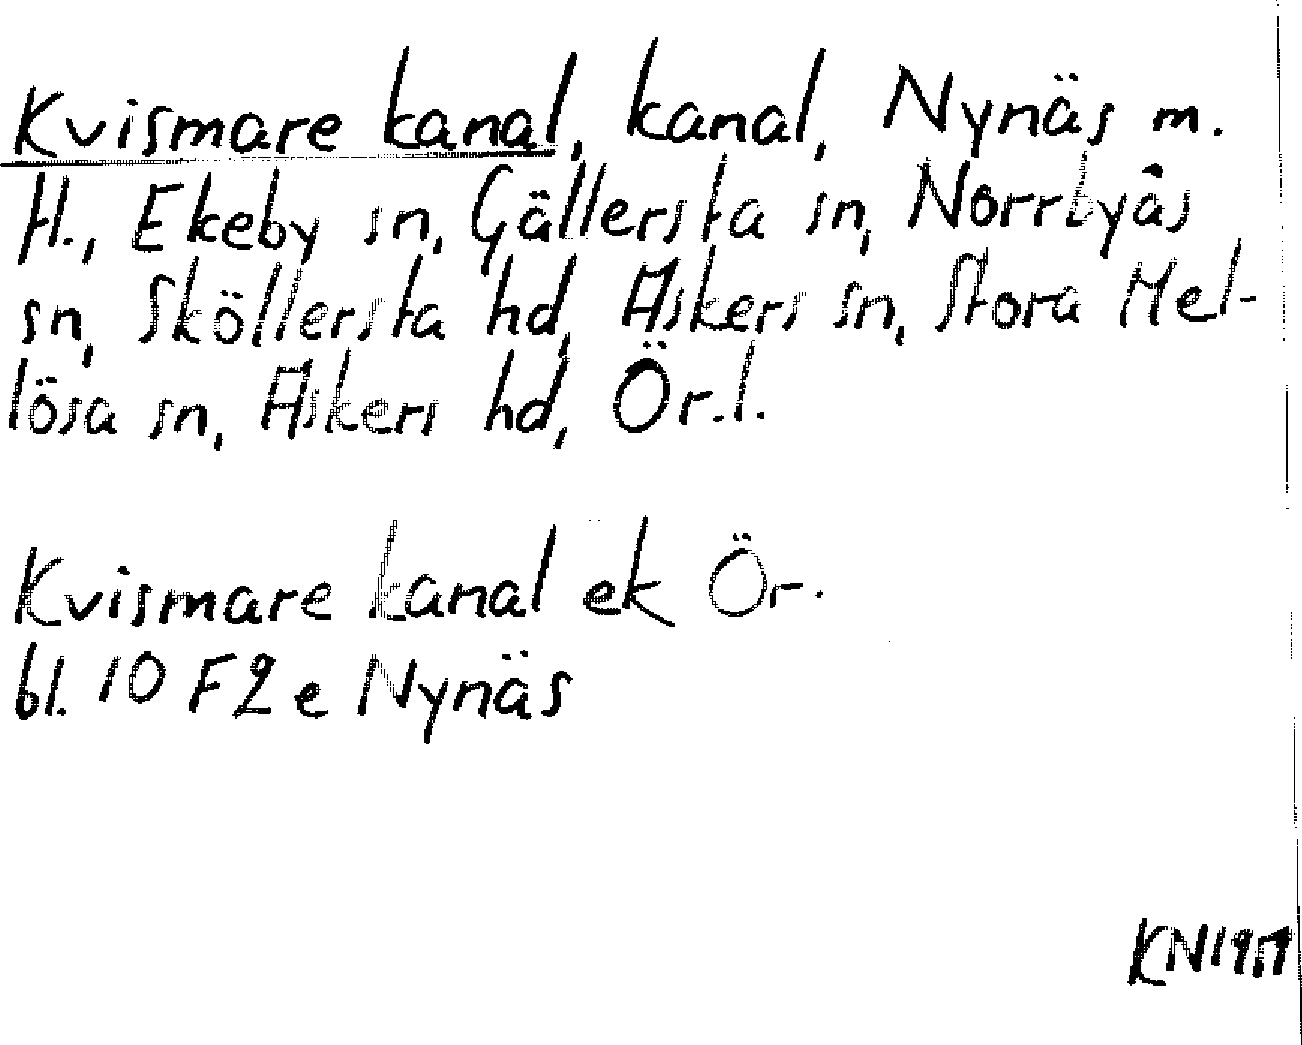 Kvismare kanal, kanal, Nynäs m.
fl., Ekeby sn, Gällersta sn, Norrbyås
sn, Sköllersta hd, Askers sn, Stora Mel-
lösa sn, Askers hd, Ör.l.
Kvismare kanal ek Ör.
bl. 10 F 2 e Nynäs